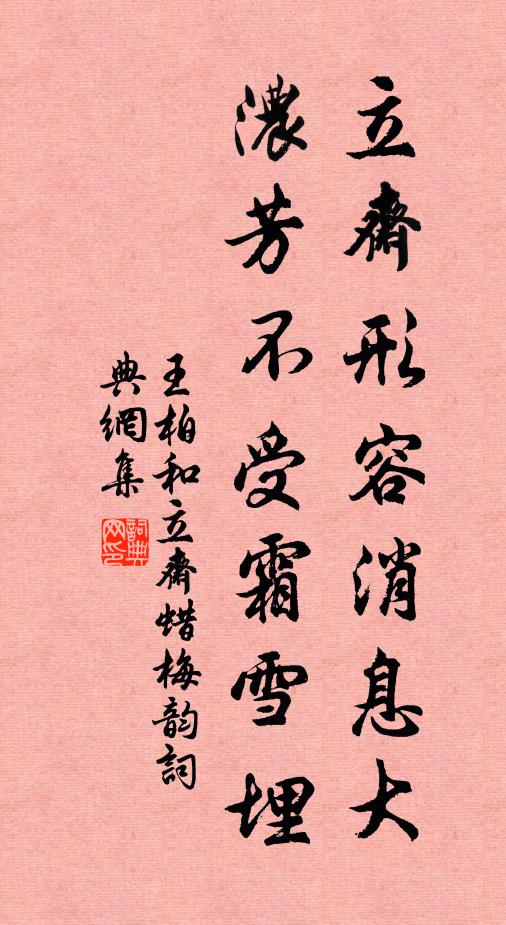 立齋形容消息大
濃芳不受霜雪埋
王柏和立齋蜡梅韵詞
典網集
詞典网印